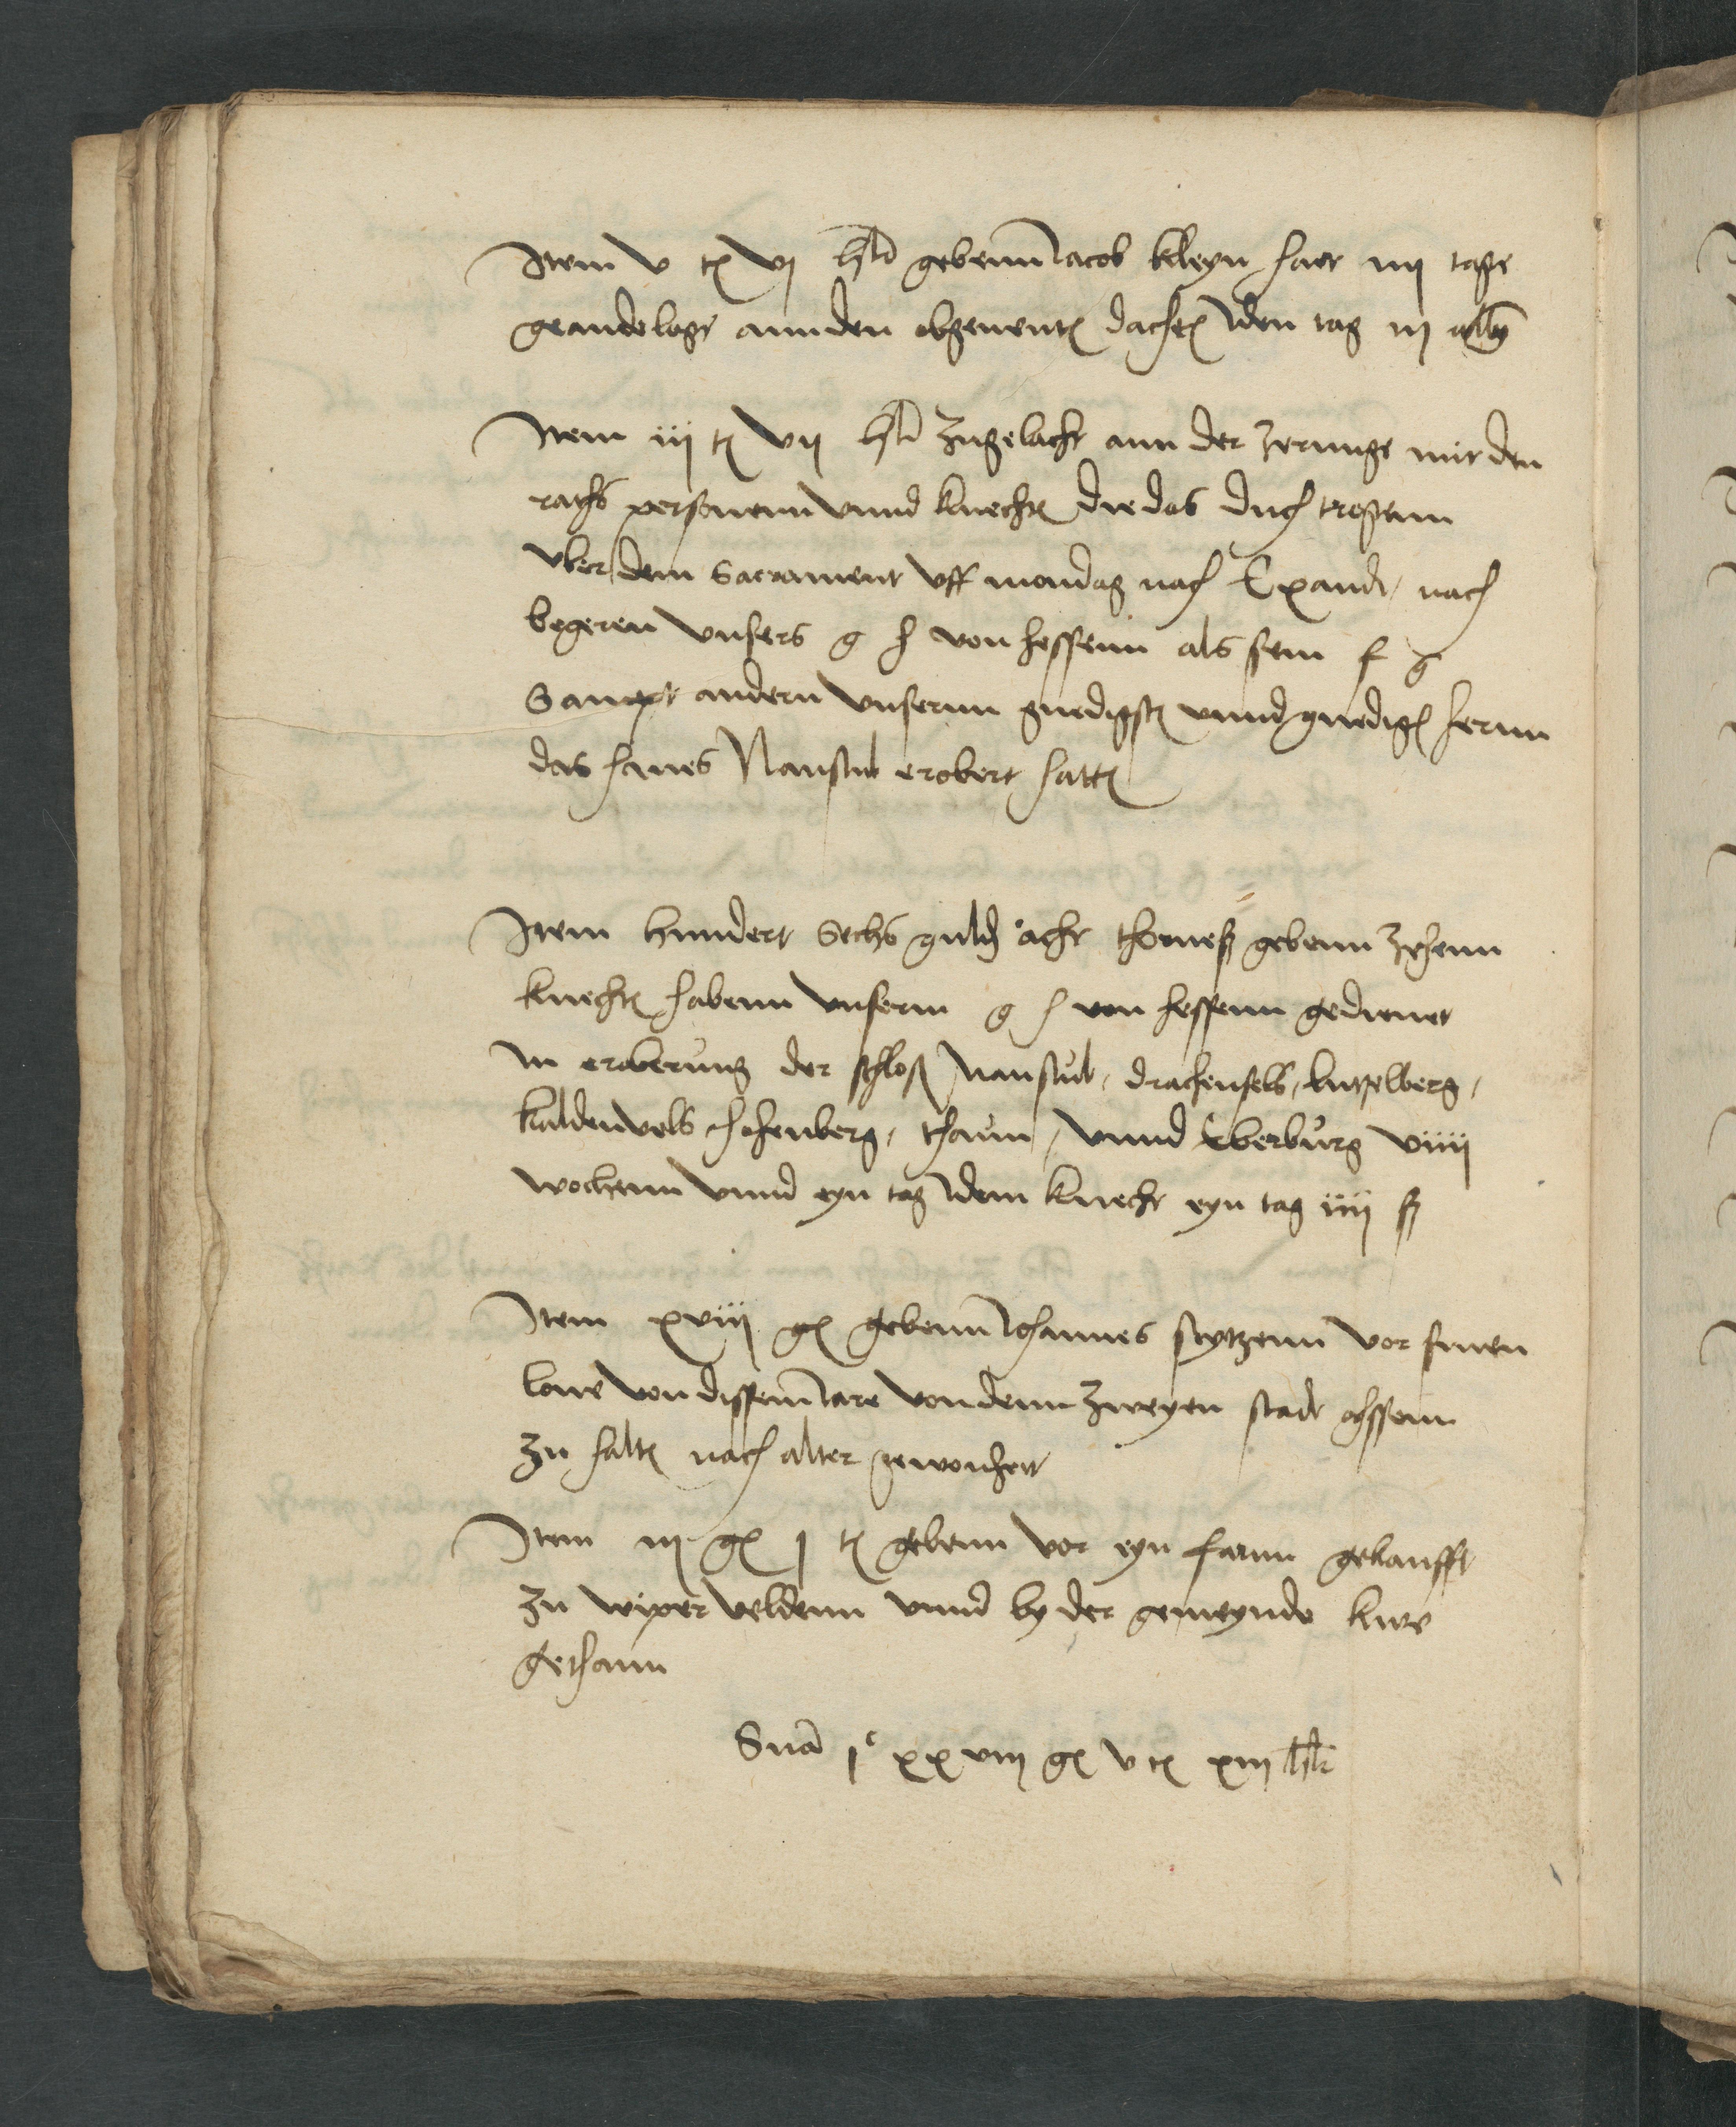 Item v t vj hl gebenn Jacob kleyn hatt iiij tage
geandelagt ann den obgenent dachen Iden tag iij alb
Item iij t vij hl zugelacht ann der zerunge mit den
raths personenn vnnd knecht die das duch tragenn
vber dem Sacrament vff mondag nach Exaudi, nach
begeren vnsers g h von hessenn als sein f g
Sampt andern vnsernn gnedigst vnnd gnedig hernn
das haues Nanstul erobert hatt
Item hundert Sechs guld acht thorneß gebenn zehenn
knecht habenn vnserm g h von hessenn gedienet
In eroberung der schloß Nanstul, drachenfels, lutzelberg,
kaldenvels hohenberg, thann, vnnd Eberburg viiij
wochenn vnnd eyn tag Idem knecht eyn tag iiij ß
Item xviij g gebenn Johannes stytzenn vor sinen
lone von dissem Jare von denn zweyen stadt ochssenn
zu halt nach alter gewonheit
Item iij g j t gebenn vor eyn farnn gekaufft
zu wiperveldenn vnnd by der gemeynde kuwe
gethann
Sua jc xxviij g v t xiij hl